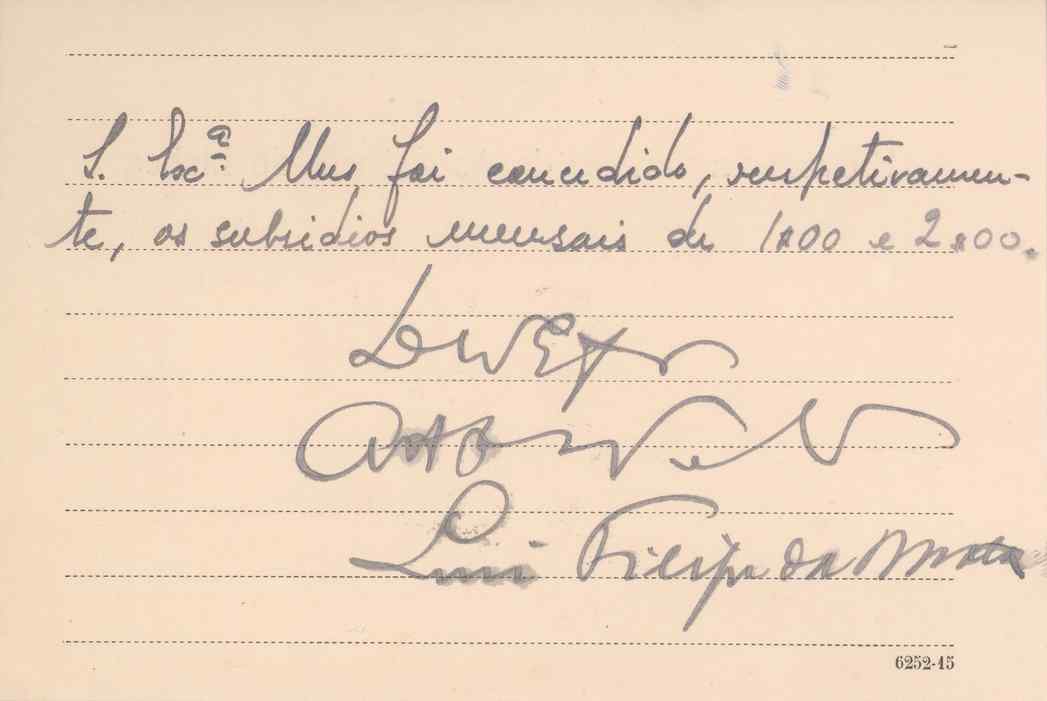 S. Exª. lhes foi concedido, respetivamen-
te, os subsidios mensais de 1$00 e 2$00.
Luis Filipe da Mota
6252-15